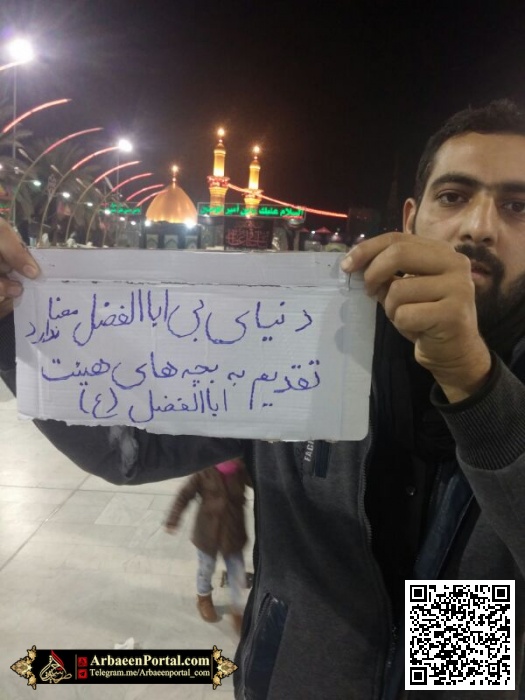 السلام عليك
دنیای بی اباالفضل معنا ندارد
تقدیم به بچه های هیئت
اباالفضل (ع)
FABR
ArbaeenPortal.com
Telegram.me/Arbaeenportal_com